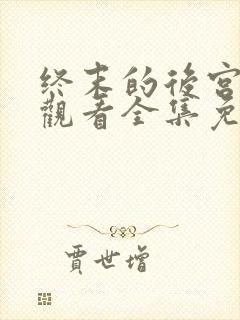 終末的後宮
觀看全集免
賈世增